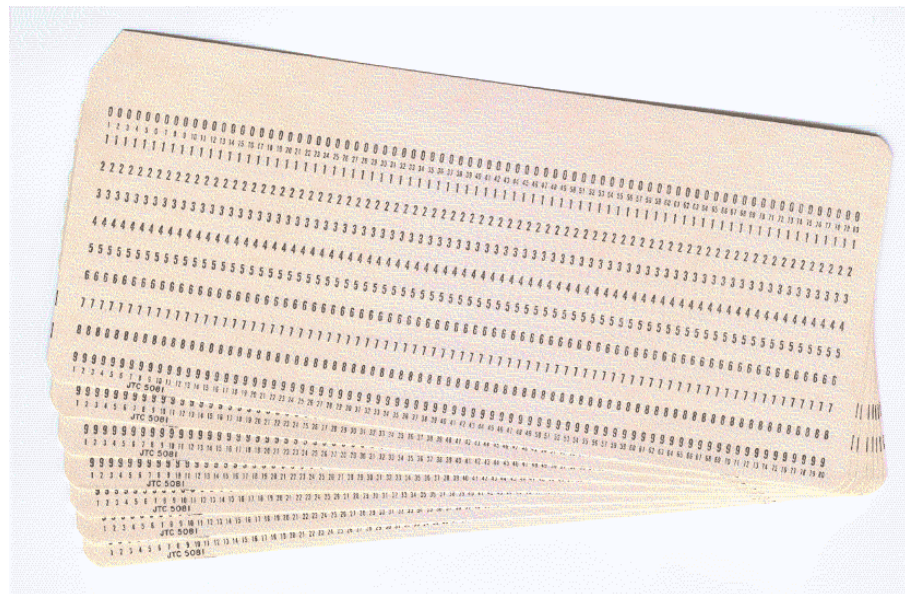 00000000000000000000000000000000000000000000000000000000000000000000000000000000
1 2 3 4 5 6 7 8 9 10 11 12 13 14 15 16 17 18 19 20 21 22 23 24 25 26 27 28 29 30 31 32 33 34 35 36 37 38 39 40 41 42 43 44 45 46 47 48 49 50 51 52 53 54 55 56 57 58 59 60 61 62 63 64 65 66 67 68 69 70 71 72 73 74 75 76 77 78 79 80
11111111111111111111111111111111111111111111111111111111111111111111111111111111
22222222222222222222222222222222222222222222222222222222222222222222222222222222
33333333333333333333333333333333333333333333333333333333333333333333333333333333
44444444444444444444444444444444444444444444444444444444444444444444444444444444
55555555555555555555555555555555555555555555555555555555555555555555555555555555
66666666666666666666666666666666666666666666666666666666666666666666666666666666
77777777777777777777777777777777777777777777777777777777777777777777777777777777
88888888888888888888888888888888888888888888888888888888888888888888888888888888
99999999999999999999999999999999999999999999999999999999999999999999999999999999
1 2 3 4 5 6 7 8 9 10 11 12 13 14 15 16 17 18 19 20 21 22 23 24 25 26 27 28 29 30 31 32 33 34 35 36 37 38 39 40 41 42 43 44 45 46 47 48 49 50 51 52 53 54 55 56 57 58 59 60 61 62 63 64 65 66 67 68 69 70 71 72 73 74 75 76 77 78 79 80
JTC 5081
JTC 5081
JTC 5081
JTC 5081
JTC 5081
JTC 5081
JTC 5081